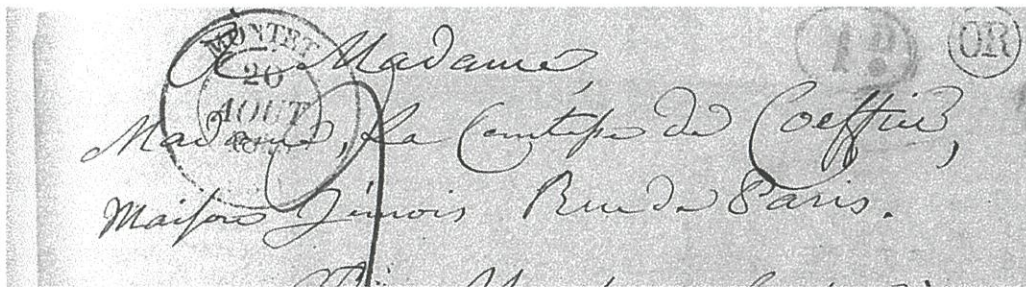 MONTET
20
AOUT
1D
OR
A Madame
Madame, La Comtesse de Coeffier,
Maison Rue de Paris.